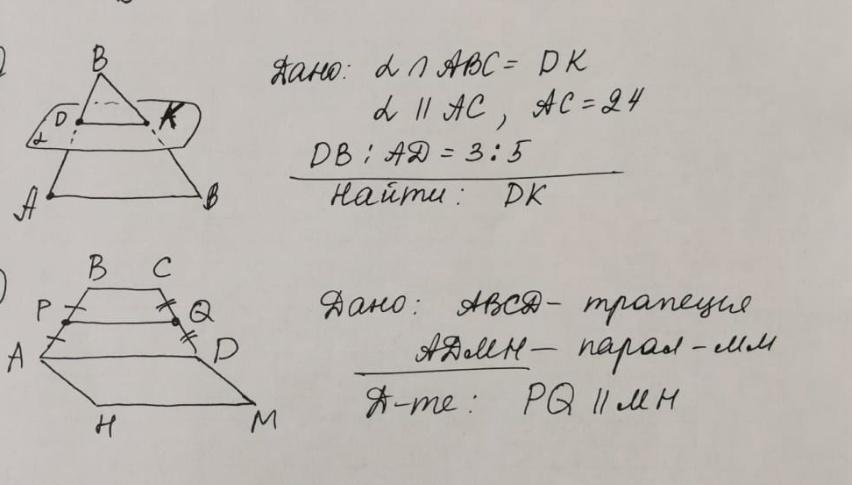 )
B
D K
α
A B
Дано: α ∩ ABC = DK
α || AC, AC = 24
DB : AD = 3 : 5
Найти: DK
)
B C
P Q
A D
H M
Дано: ABCD – трапеция
ADMH – парал – мм
Д-те: PQ || MH